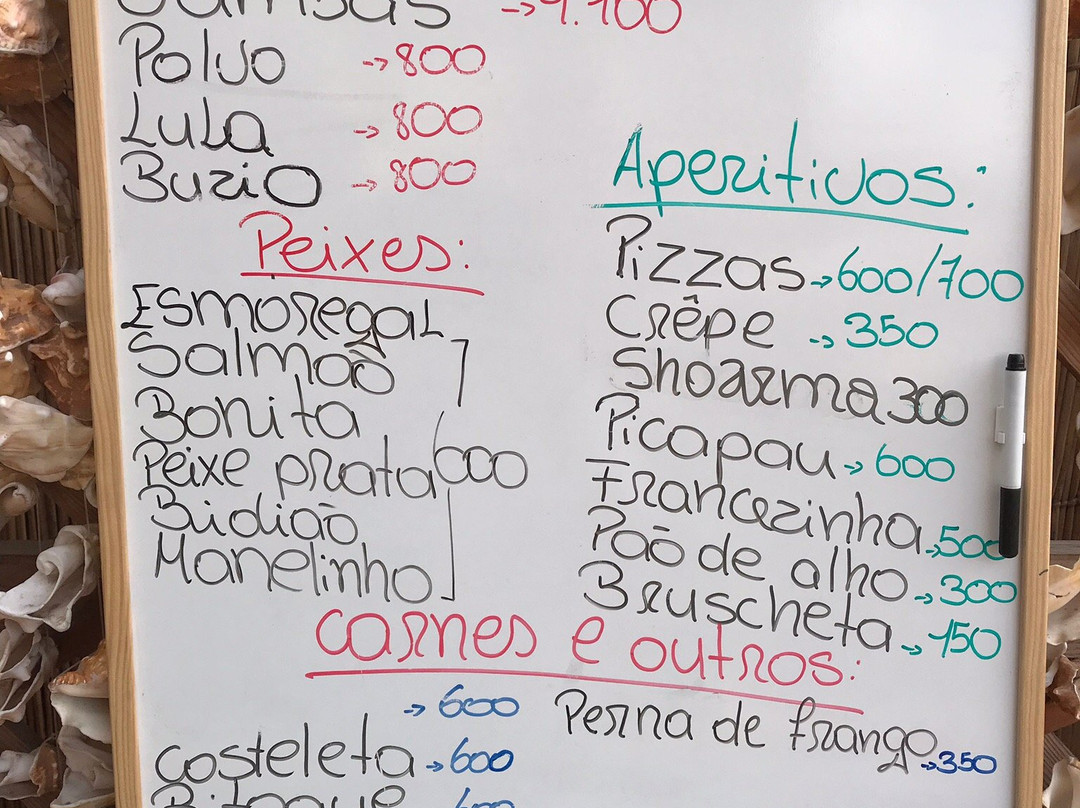 → 1.100
Polvo → 800
Lula → 800
Buzio → 800
Peixes:
Esmoregal
Salmão
Bonita
Peixe prata 600
Bidião
Manelinho
Aperitivos:
Pizzas → 600/700
Crêpe → 350
Shoarma 300
Picapau → 600
Francezinha → 500
Pão de alho → 300
Bruscheta → 150
Carnes e outros:
→ 600
Costeleta → 600
Bitoque 600
Perna de frango → 350